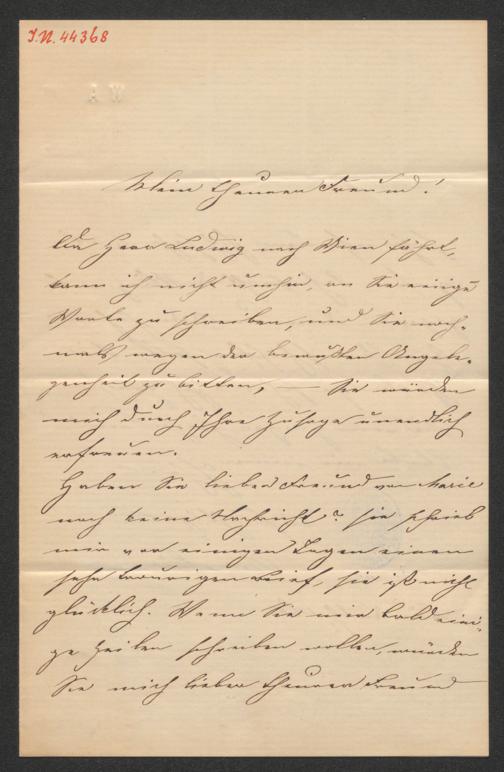 I.N. 44368
W A
Mein theurer Freund!
Da Herr Ludwig nach Wien fährt,
kann ich nicht umhin, an Sie einige
Worte zu schreiben, und Sie noch-
mals wegen der bewußten Angele-
genheit zu bitten, — Sie würden
mich durch Ihre Zusage unendlich
erfreuen.
Haben Sie lieber Freund von Marie
noch keine Nachricht? sie schrieb
mir vor einigen Tagen einen
sehr traurigen Brief, sie ist nicht
glücklich. Wenn Sie mir bald eini-
ge Zeilen schreiben wollen, würden
Sie mich lieber theurer Freund